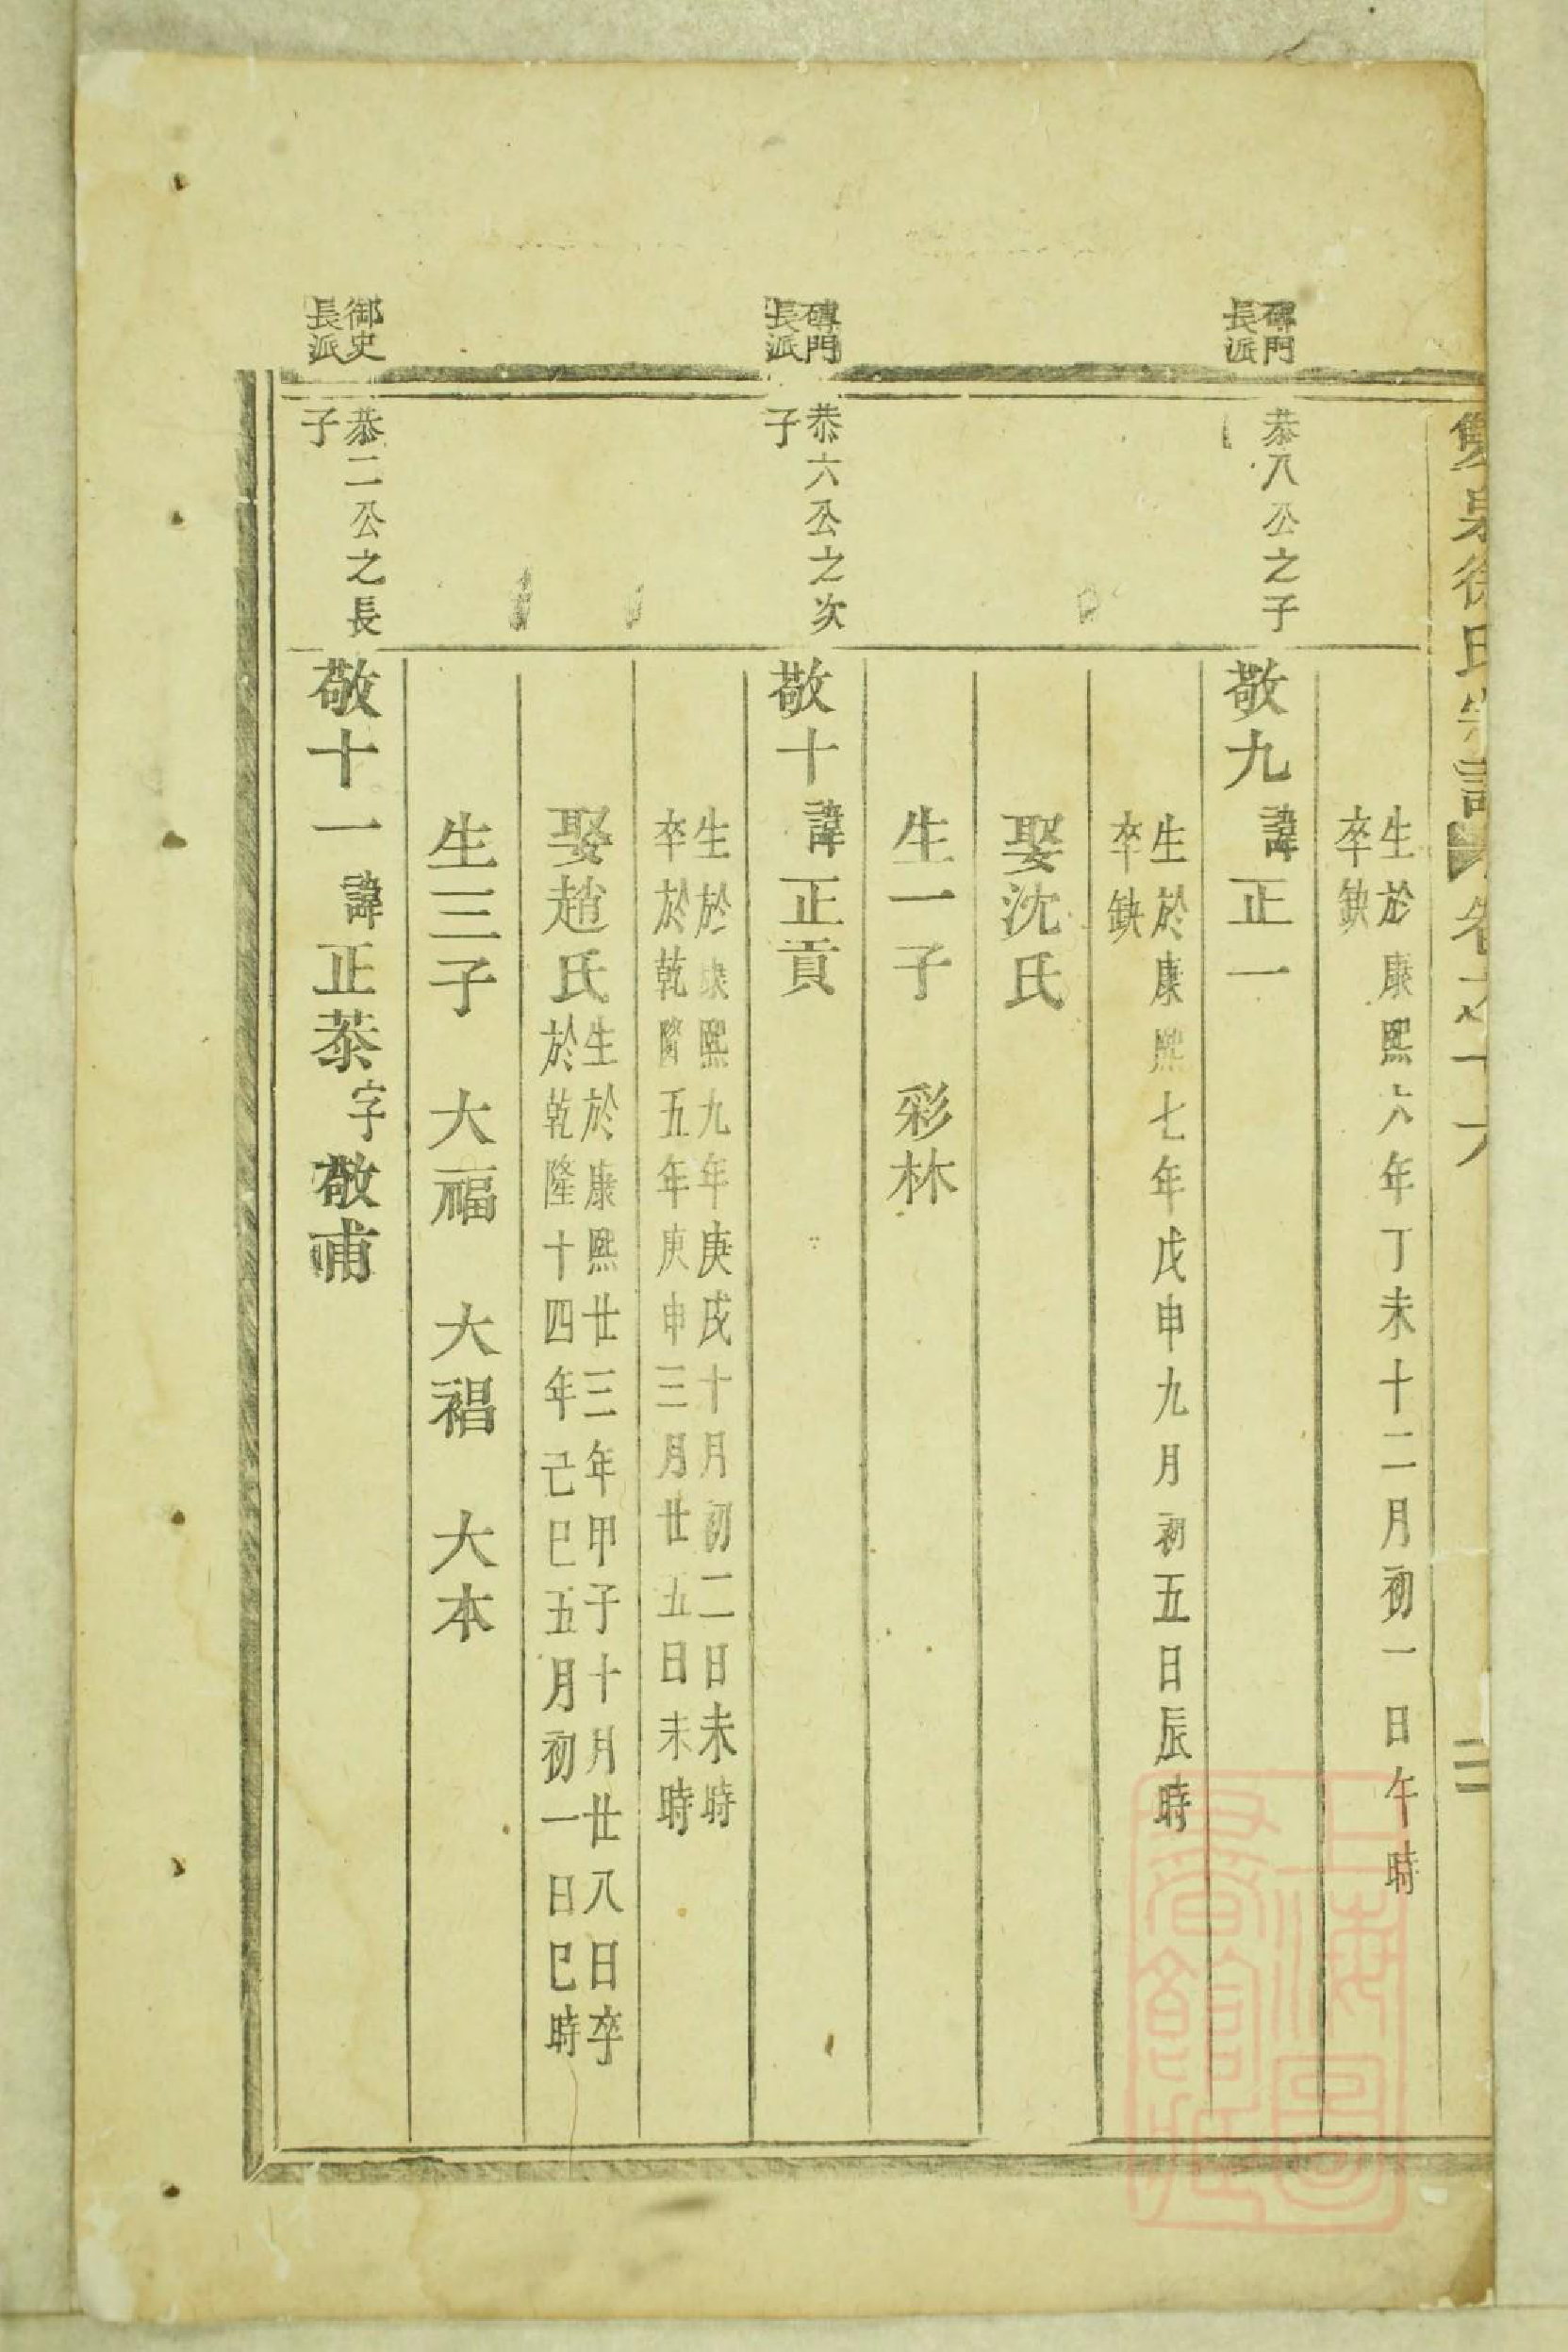 雙泉徐氏宗譜 卷之十六 二
生於康熙六年丁未十二月初一日午時
卒缺
磚門
長派
恭八公之子
敬九 諱正一
生於康熙七年戊申九月初五日辰時
卒缺
娶沈氏
生一子 彩林
磚門
長派
恭六公之次
子
敬十 諱正貢
生於康熙九年庚戌十月初二日未時
卒於乾隆五年庚申三月廿五日未時
娶趙氏 生於康熙廿三年甲子十月廿八日卒
於乾隆十四年己巳五月初一日巳時
生三子 大福 大裮 大本
御史
長派
恭二公之長
子
敬十一 諱正泰字敬甫
上海圖
書館藏